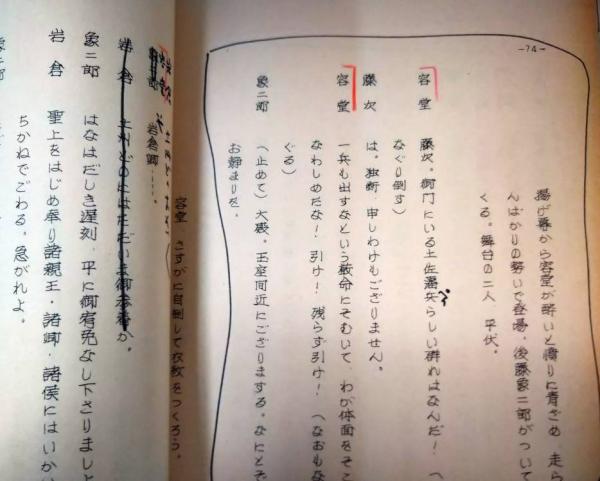 -74-
揚げ幕から容堂が酔いと憤りに青ざめ 走ら
んばかりの勢いで登場、後藤象二郎がついて
くる。舞台の二人 平伏。
容堂 藤次。御門にいる土佐藩兵らしい群れはなんだ! (
なぐり倒す)
藤次 は。独断 申しわけもござりません。
容堂 一兵も出すなという厳命にそむいて、わが体面をそこ
なわしめたな! 引け! 残らず引け! (なおもな
ぐる)
象二郎 (止めて) 大殿。玉座間近にござりまする。なにとぞ
お静まりを。
容堂 さすがに自制して衣紋をつくろう。
岩倉卿……。
岩倉 土州どのにはただいま御参着か。
象二郎 はなはだしき遅刻 平に御宥免なし下さりましょ
岩倉 聖上をはじめ奉り諸親王・諸卿・諸侯にはいかい
ちかねでごわる。急がれよ。
象二郎